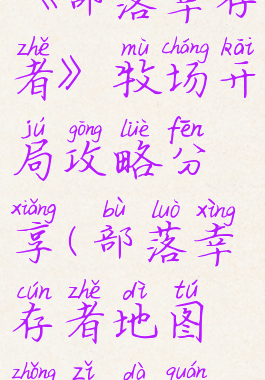 《部落幸存
zhě mù chǎng kāi
者》牧场开
jú gōng lüè fēn
局攻略分
xiǎng bù luò xìng
享(部落幸
cún zhě dì tú
存者地图
zhǒng zǐ dà quán